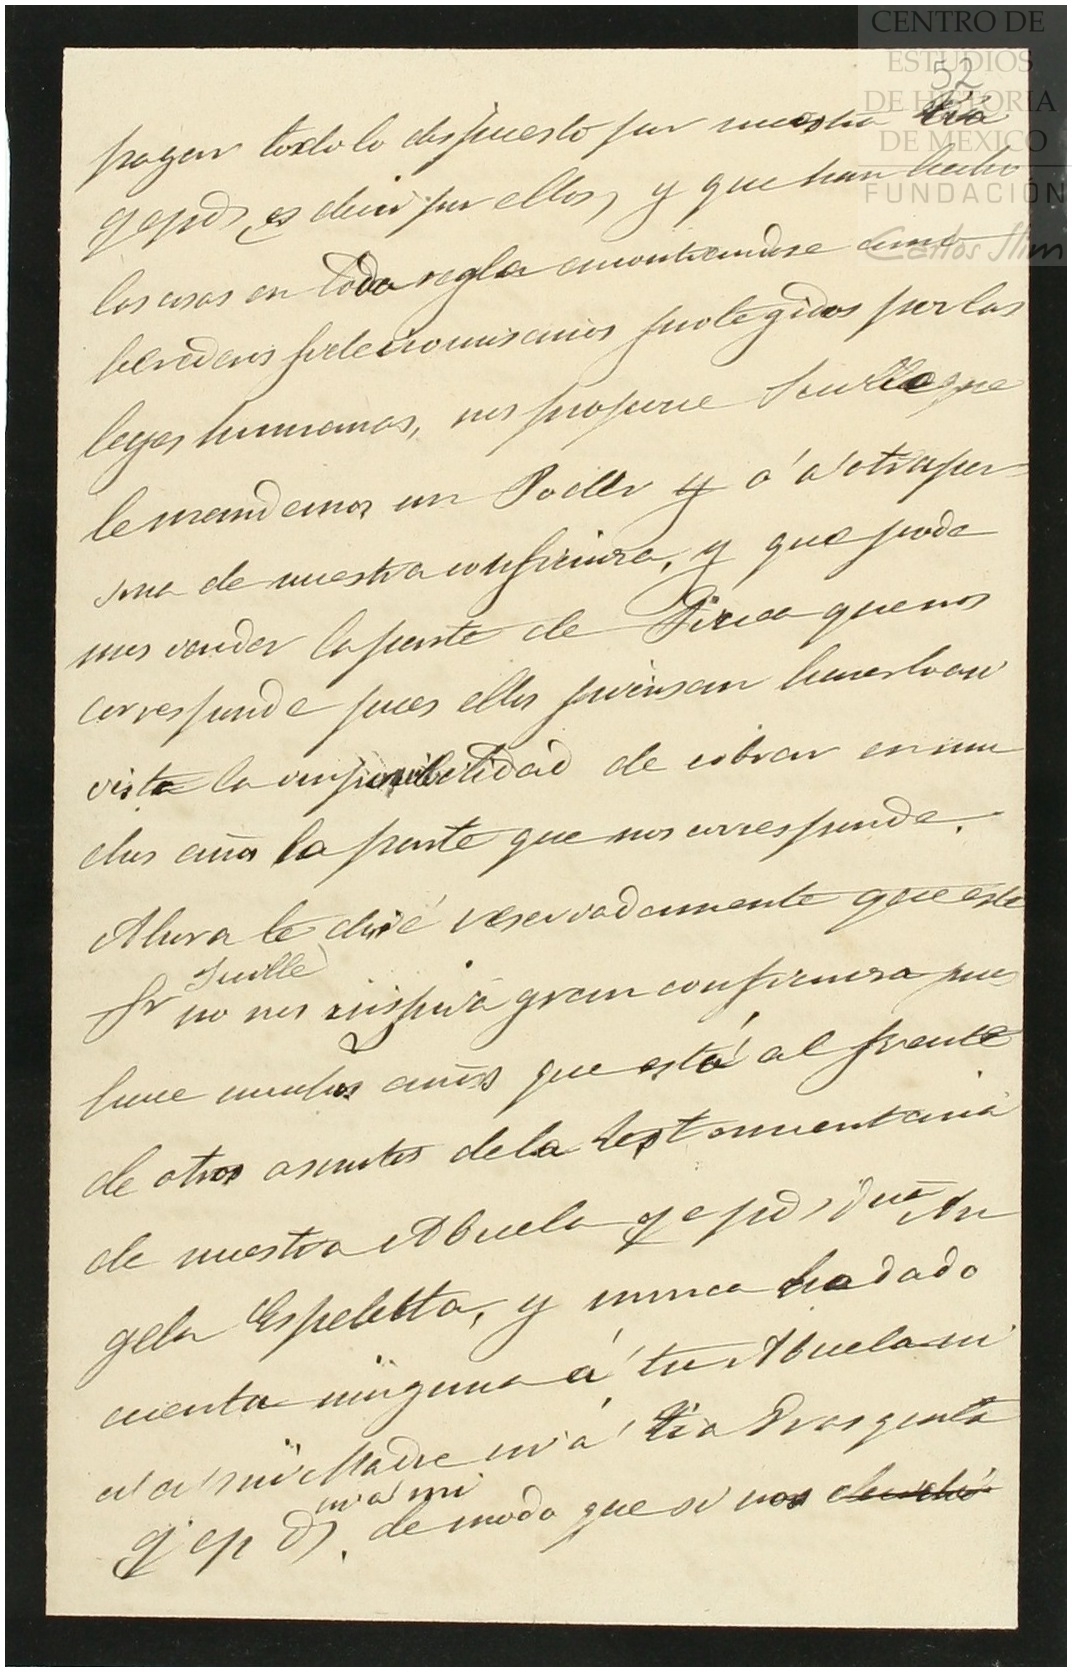 CENTRO DE
ESTUDIOS
DE HISTORIA
DE MÉXICO
FUNDACIÓN
Carlos Slim
52
pagar todo lo dispuesto por nuestra tía
q e p d, es decir por ellos, y que han hecho
las cosas en toda regla encontrandose como
herederos fideicomisarios protegidos por las
leyes humanas, nos propone que
le mandemos un Poder y ó á otra per-
sona de nuestra confianza, y que poda
mos vender la parte de Finca que nos
corresponde pues ellos piensan hacerlo así
vista la imposibilidad de cobrar en mu
chos años la parte que nos corresponde.
Ahora te diré reservadamente que este
Sr no nos inspira gran confianza pues
hace muchos años que está al frente
de otros asuntos de la testamentaria
de nuestra Abuela q e p d, Dña An
gela Espeletta, y nunca ha dado
cuenta ninguna á tu Abuela ni
á mi Madre ni á tia
ni á mi
q e p d, de modo que si nos